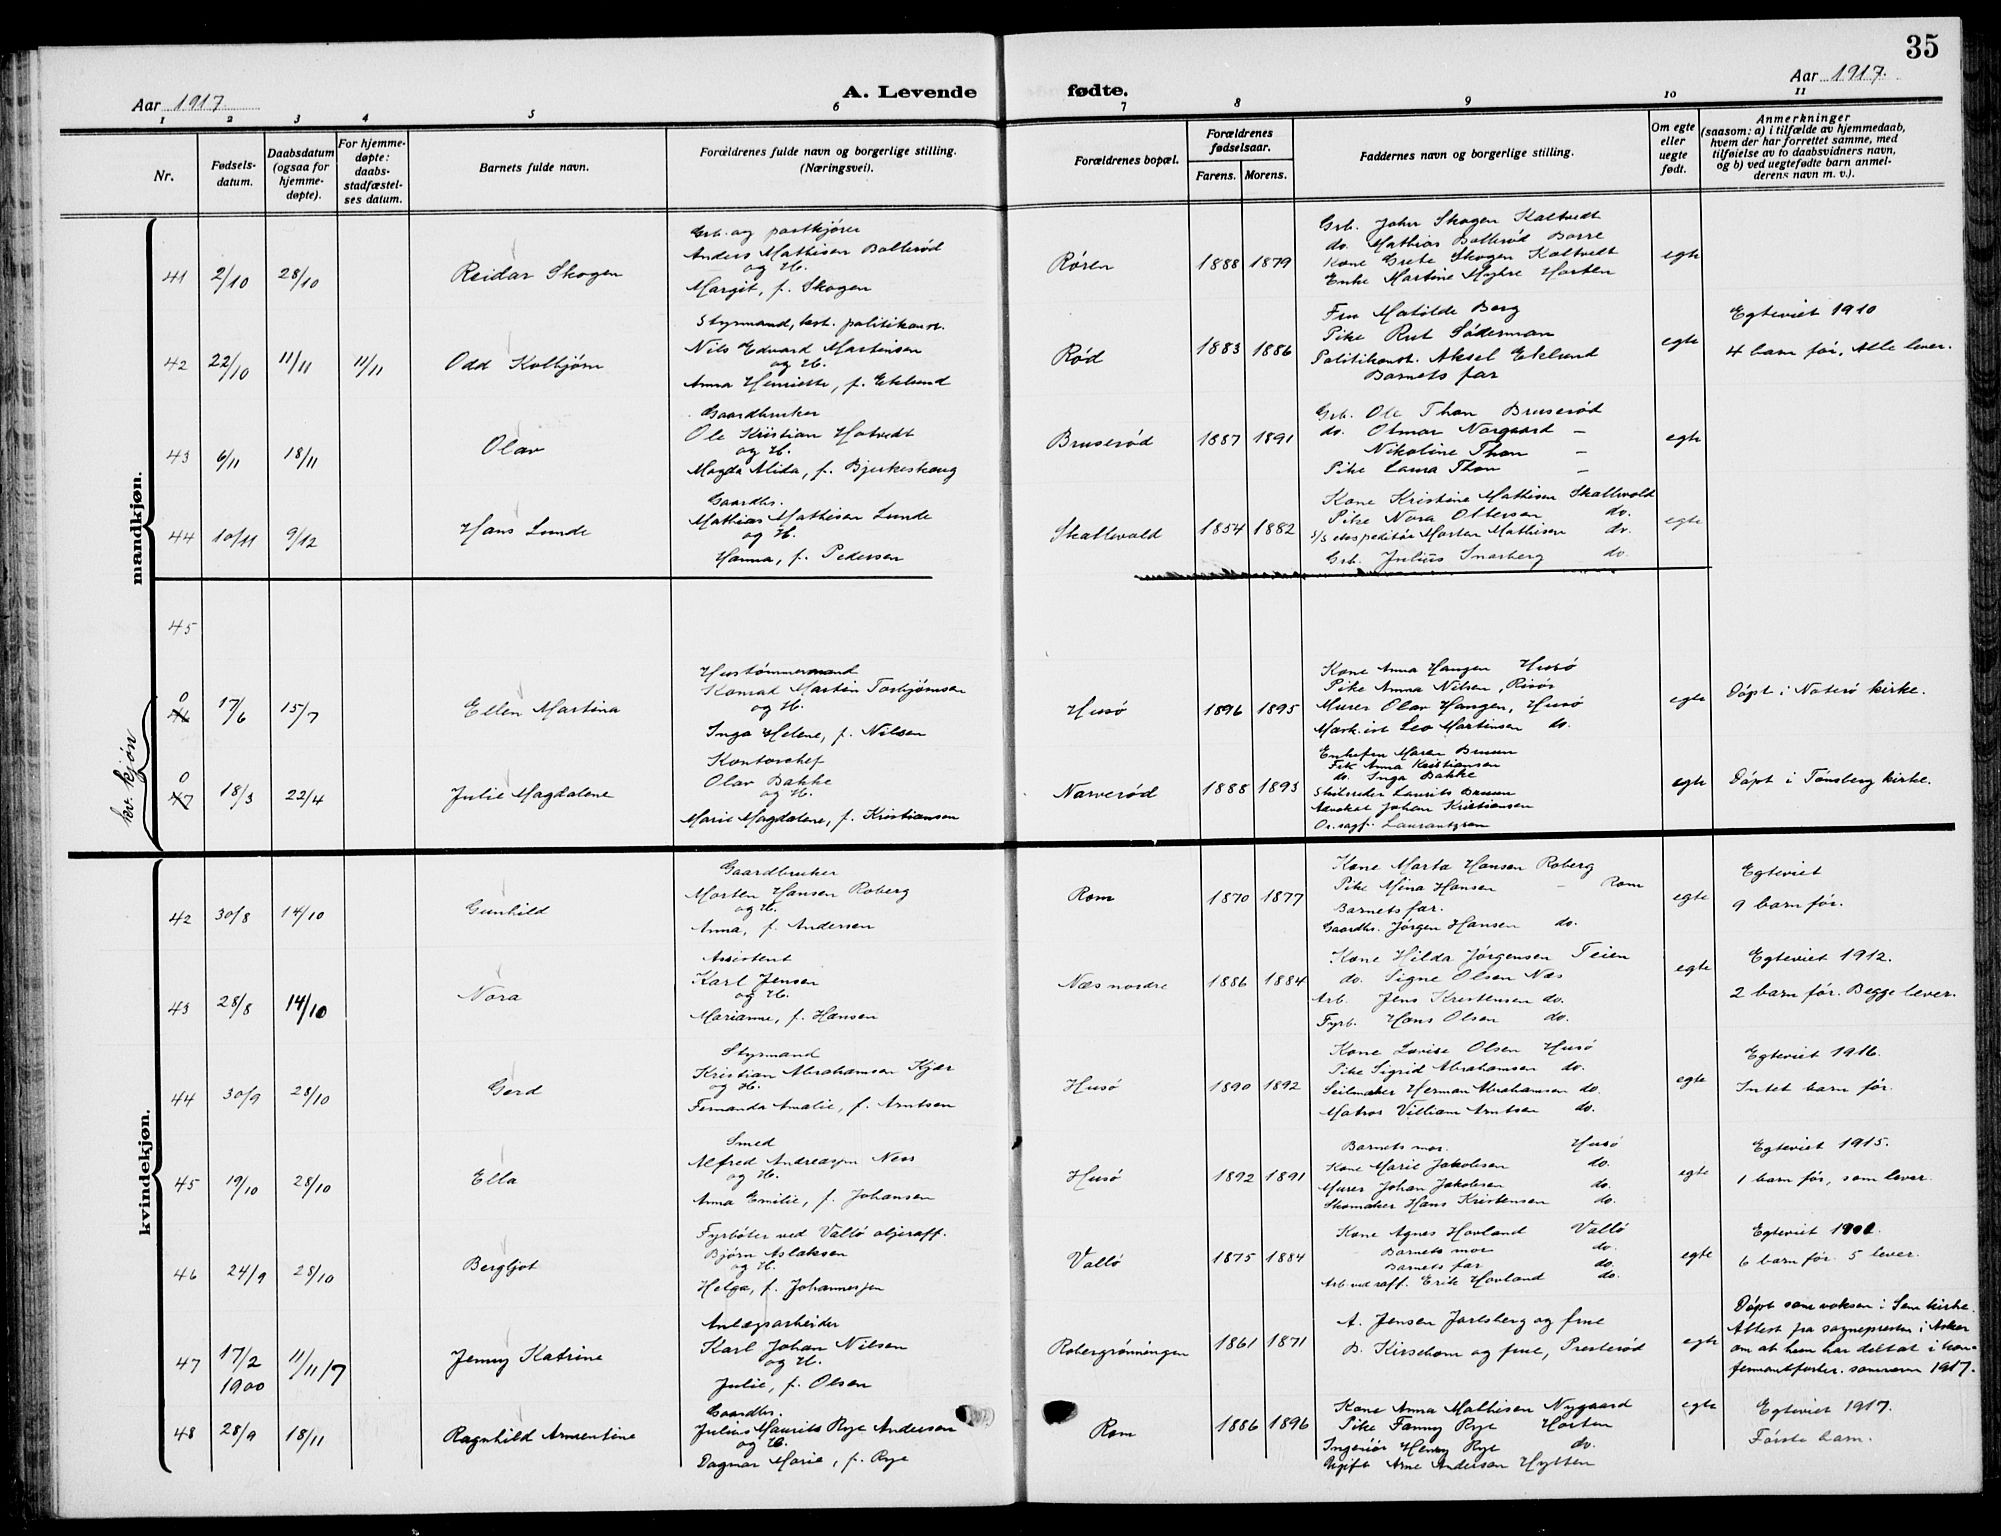 35
Aar 1917
A. Levende fødte.
Aar 1917.
1 2 3 4 5 6 7 8 9 10 11
Nr.
Fødsels-
datum.
Daabsdatum
(ogsaa for
hjemme-
døpte).
For hjemme-
døpte:
daabs-
stadfæstel-
ses datum.
Barnets fulde navn.
Forældrenes fulde navn og borgerlige stilling.
(Næringsvei).
Forældrenes bopæl.
Forældrenes
fødselsaar.
Farens. Morens.
Faddernes navn og borgerlige stilling.
Om egte
eller
uegte
født.
Anmerkninger
(saasom: a) i tilfælde av hjemmedaab,
hvem der har forrettet samme, med
tilføielse av to daabsvidners navn,
og b) ved uegtefødte barn anmel-
derens navn m. v.).
mandkjøn.
41 2/10 28/10 Reidar Skogen
Grb. og postkjører
Anders Mathisen Bollerød
og H.
Margit, f. Skogen
Røren 1888 1879
Grb. John Skogen Kaltvedt
do. Mathias Bollerød Borre
Kone Grete Skogen Kaltvedt
Enke Martine Myhre Horten
egte
42 22/10 11/11 11/11 Odd Kolbjørn
Styrmand, kst. politikonst.
Nils Edvard Martinsen
og H.
Anna Henriette, f. Eklund
Rød 1883 1886
Fru Matilde Berg
Pike Rut Søderman
Politikonst. Aksel Eklund
Barnets far
egte
Egteviet 1910
4 barn før, Alle lever.
43 6/11 18/11 Olav
Gaardbruker
Ole Kristian Hotvedt
og H.
Magda Alida, f. Bjerkeskaug
Bruserød 1887 1891
Grb. Ole Thon Bruserød
do. Otmar Norgaard –
Nikoline Thon –
Pike Laura Thon –
egte
44 10/11 9/12 Hans Lunde
Gaardbr.
Mathias Mathisen Lunde
og H.
Hanna, f. Pedersen
Skallevold 1854 1882
Kone Kristine Mathisen Skallevold
Pike Nora Ottersen do.
s/s ekspeditør Morten Mathisen do.
Grb. Julius Snarberg do.
egte
45
kv. kjøn
0
46 17/6 15/7 Ellen Martina
Hustømmermand
Konrad Martin Torbjørnsen
og H.
Inga Helene, f. Nilsen
Husø 1896 1895
Kone Anna Haugen Husø
Pike Anna Nilsen, Risør
Murer Olav Haugen, Husø
Mask.ist Leo Martinsen do.
egte
Døpt i Nøterø kirke.
0
47 18/3 22/4 Julie Magdalene
Kontorchef
Olav Bakke
og H.
Marie Magdalene, f. Kristiansen
Narverød 1888 1893
Enkefru Maren Bruun
Frk Anna Kristiansen
do. Inga Bakke
Skibsreder Laurits Bruun
Advokat Johan Kristiansen
egte
Døpt i Tønsberg kirke.
kvindekjøn.
42 30/8 14/10 Gunhild
Gaardbruker
Morten Hansen Roberg
og H.
Anna, f. Andersen
Rom 1870 1877
Kone Marta Hansen Roberg
Pike Mina Hansen – Rom
Barnets far.
Gaardbr. Jørgen Hansen do.
egte
Egteviet
9 barn før.
43 28/8 14/10 Nora
Assistent
Karl Jensen
og H.
Marianne, f. Hansen
Næs nordre 1886 1884
Kone Hilda Jørgensen Teien
do. Signe Olsen Næs
Arb. Jens Krestensen do.
Fyrb. Hans Olsen do.
egte
Egteviet 1912.
2 barn før. Begge lever.
44 30/9 28/10 Gerd
Styrmand
Kristian Abrahamsen Kjær
og H.
Fernanda Amalie, f. Arntsen
Husø 1890 1892
Kone Lovise Olsen Husø
Pike Sigrid Abrahamsen do.
Seilmaker Herman Abrahamsen do.
Matros Villiam Arntsen do.
egte
Egteviet 1916.
Intet barn før.
45 19/10 28/10 Ella
Smed
Alfred Andreasen Ness
og H.
Anna Emilie, f. Johansen
Husø 1892 1891
Barnets mor. Husø
Kone Marie Jakobsen do.
Murer Johan Jakobsen do.
Skomaker Hans Kristensen do.
egte
Egteviet 1915.
1 barn før, som lever.
46 24/9 28/10 Bergljot
Fyrbøter ved Vallø oljeraff.
Bjørn Aslaksen
og H.
Helga, f. Johannesjen
Vallø 1875 1884
Kone Agnes Hovland Vallø
Barnets mor do.
Barnets far do.
Arb ved raff. Erik Hovland do.
egte
Egteviet
6 barn før. 5 lever.
47 17/2 1900 11/11/7 Jenny Katrine
Anlægsarbeider
Karl Johan Nilsen
og H.
Julie, f. Olsen
Robergrønningen 1861 1871
A. Jensen Jarlsberg og frue
B. Kirsebom og frue, Presterød
egte
Døpt som voksen i Sem kirke.
Attest fra sogneprester i Asker
om at hun har deltat i kon-
firmantforber. sommeren 1917.
48 28/9 18/11 Ragnhild Armentine
Gaardbr.
Julius Maurits Rye Andersen
og H.
Dagmar Marie, f. Rye
Rom 1886 1896
Kone Anna Mathisen Nygaard
Pike Fanny Rye Horten
Ingeniør Henry Rye do.
Ugift Arne Andersen Hytten
egte
Egteviet 1917.
Første barn.